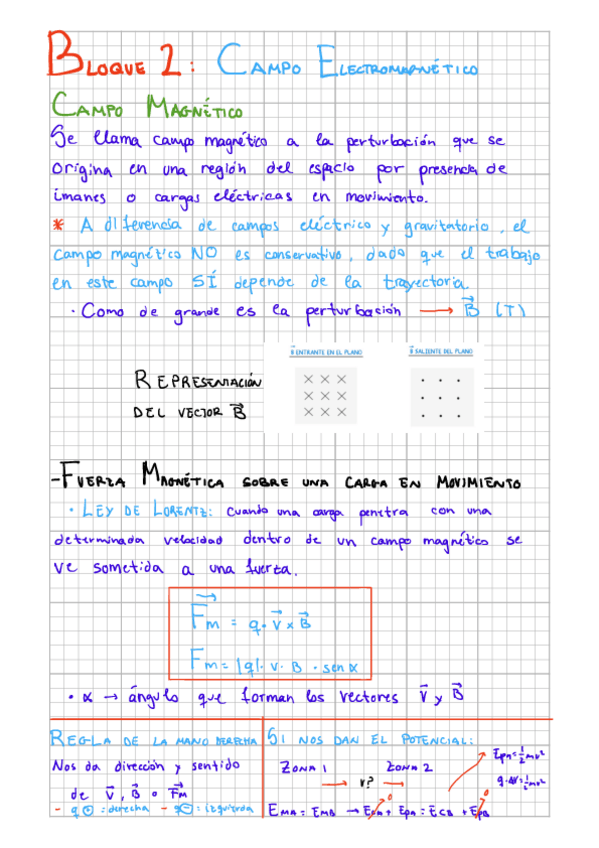 BLOQUE 2: CAMPO ELECTROMAGNÉTICO
CAMPO MAGNÉTICO
Se llama campo magnético a la perturbación que se
origina en una región del espacio por presencia de
imanes o cargas eléctricas en movimiento.
* A diferencia de campos eléctrico y gravitatorio, el
campo magnético NO es conservativo, dado que el trabajo
en este campo SÍ depende de la trayectoria.
· Como de grande es la perturbación → B⃗ (T)
B⃗ ENTRANTE EN EL PLANO
B⃗ SALIENTE DEL PLANO
REPRESENTACIÓN
DEL VECTOR B⃗
- FUERZA MAGNÉTICA SOBRE UNA CARGA EN MOVIMIENTO
· LEY DE LORENTZ: cuando una carga penetra con una
determinada velocidad dentro de un campo magnético se
ve sometida a una fuerza.
F⃗m = q · v⃗ x B⃗
Fm = |q| · v · B · sen α
· α → ángulo que forman los vectores v⃗ y B⃗
REGLA DE LA MANO DERECHA
Nos da dirección y sentido
de v⃗, B⃗ o F⃗m
- q ⊕ : derecha - q ⊖ : izquierda
SI NOS DAN EL POTENCIAL:
ZONA 1 ZONA 2
→ v? →
EMA = EMB → ECA + EPA = ECB + EPB
0 0
q·ΔV = ½mv²